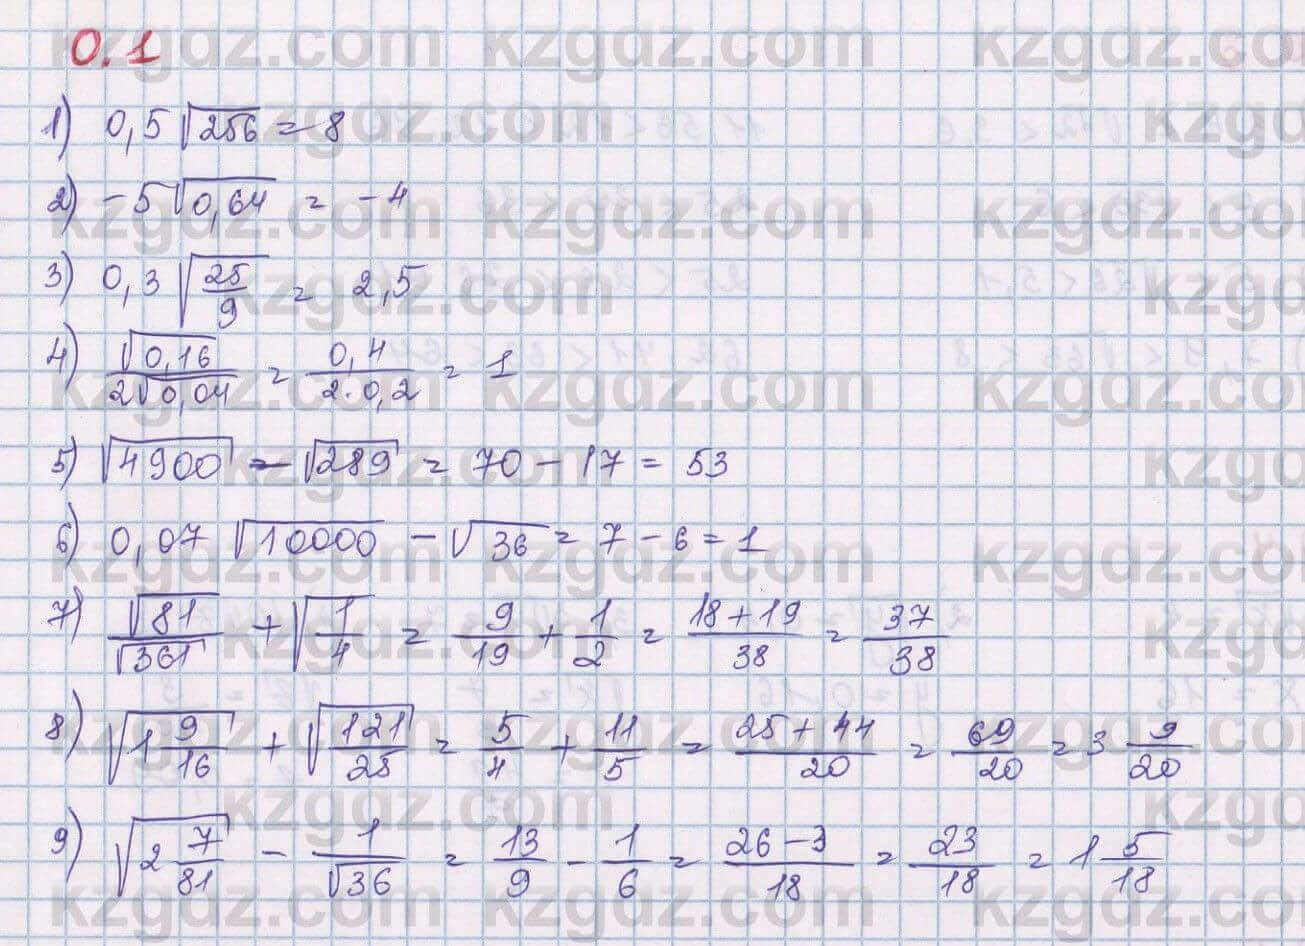 0.1
1) 0,5 √256 = 8
2) -5 √0,64 = -4
3) 0,3 √(25/9) = 2,5
4) √0,16 / 2√0,04 = 0,4 / 2·0,2 = 1
5) √4900 - √289 = 70 - 17 = 53
6) 0,07 √10000 - √36 = 7 - 6 = 1
7) √81/√361 + √(1/4) = 9/19 + 1/2 = (18+19)/38 = 37/38
8) √(1 9/16) + √(121/25) = 5/4 + 11/5 = (25+44)/20 = 69/20 = 3 9/20
9) √(2 7/81) - 1/√36 = 13/9 - 1/6 = (26-3)/18 = 23/18 = 1 5/18